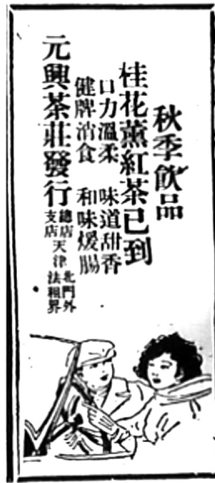 秋季飲品
桂花薰紅茶已到
口力溫柔 味道甜香
健脾消食 和味煖腸
元興茶莊發行
總店天津北門外
支店 法租界